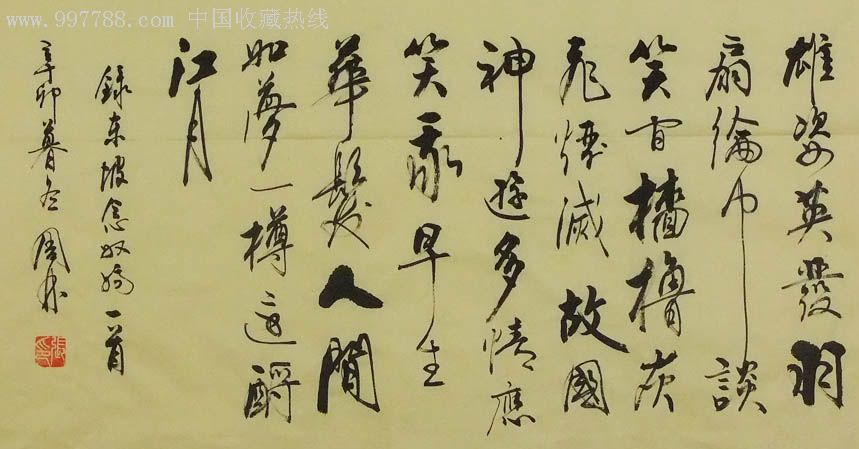 www.997788.com 中国收藏热线
雄姿英發羽
扇綸巾談
笑间檣擼灰
飛煙滅故國
神遊多情應
笑我早生
華髮人間
如夢一樽還酹
江月
錄東坡念奴嬌一首
辛卯暮冬